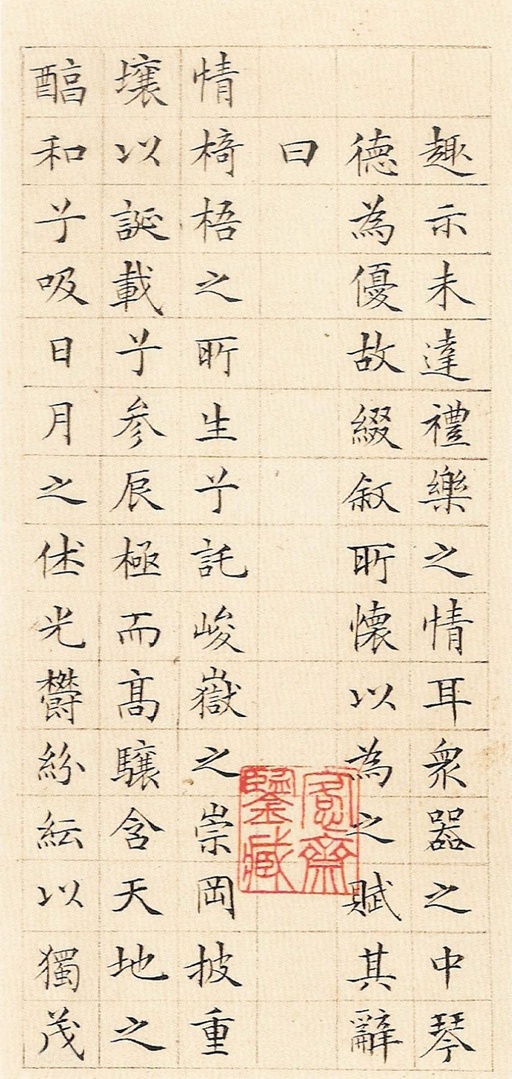 趣亦未達禮樂之情耳衆器之中琴
德為優故綴敘所懷以為之賦其辭
曰
情椅梧之所生兮託峻嶽之崇岡披重
壤以誕載兮參辰極而高驤含天地之
醕和兮吸日月之休光鬱紛紜以獨茂
愙齋鑒藏